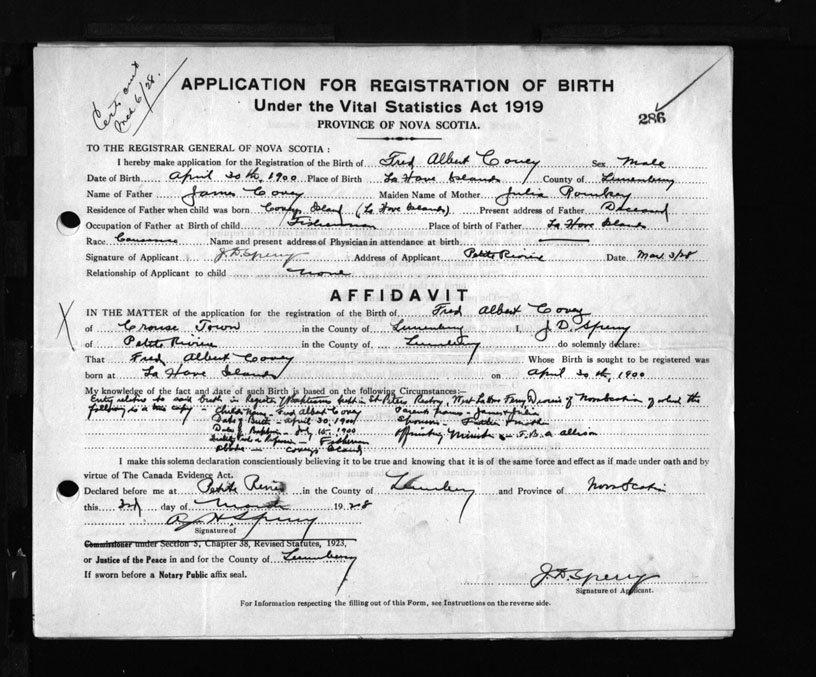 Certs out
Mch 6/28.
APPLICATION FOR REGISTRATION OF BIRTH
Under the Vital Statistics Act 1919
286
PROVINCE OF NOVA SCOTIA.
TO THE REGISTRAR GENERAL OF NOVA SCOTIA :
I hereby make application for the Registration of the Birth of Fred Albert Covey Sex Male
Date of Birth April 30th, 1900 Place of Birth La Have Islands County of Lunenburg
Name of Father James Covey Maiden Name of Mother Julia
Residence of Father when child was born Coveys Island (La Have Islands) Present address of Father Deceased
Occupation of Father at Birth of child Fisherman Place of birth of Father La Have Islands
Race Name and present address of Physician in attendance at birth
Signature of Applicant J. D. Sperry Address of Applicant Petite Riviere Date Mar 3/28
Relationship of Applicant to child None
AFFIDAVIT
IN THE MATTER of the application for the registration of the Birth of Fred Albert Covey
of Crouse Town in the County of Lunenburg I, J. D. Sperry
of Petite Riviere in the County of Lunenburg do solemnly declare:
That Fred Albert Covey Whose Birth is sought to be registered was
born at La Have Islands on April 30th, 1900
My knowledge of the fact and date of such Birth is based on the following Circumstances:—
Entry relative to said birth in Register of Baptisms held in St Peters Rectory, West La Have Ferry, Diocese of Nova Scotia of which the
following is a true copy - Childs Name - Fred Albert Covey Parents names - James & Julia
Date of Birth - April 30, 1900 Sponsors - Father Mother
Date of Baptism - July 15 - 1900 Officiating Minister - F. B. A. Allison
Fisherman
Abode - Coveys Island
I make this solemn declaration conscientiously believing it to be true and knowing that it is of the same force and effect as if made under oath and by
virtue of The Canada Evidence Act.
Declared before me at Petite Riviere in the County of Lunenburg and Province of Nova Scotia
this 3rd day of March 1928
Sperry
Signature of
Commissioner under Section 5, Chapter 38, Revised Statutes, 1923,
or Justice of the Peace in and for the County of Lunenburg
If sworn before a Notary Public affix seal.
J. D. Sperry
Signature of Applicant.
For Information respecting the filling out of this Form, see Instructions on the reverse side.